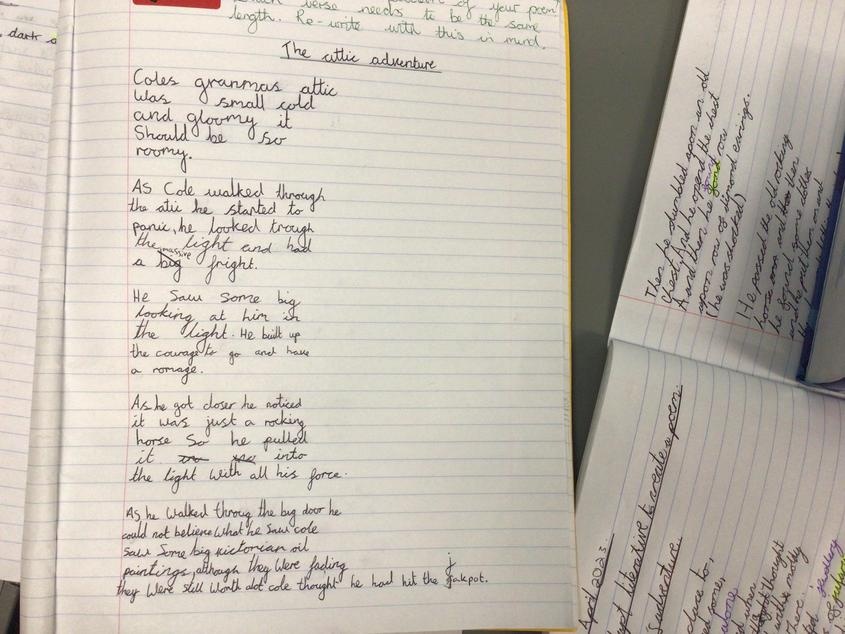 dark
of your poem
verse needs to be the same
length. Re-write with this in mind.
The attic adventure
Coles granmas attic
Was small cold
and gloomy it
Should be so
roomy.
As Cole walked through
the atic he started to
panic, he looked trough
the light and had
massive
a big fright.
He Saw some big
looking at him in
the light. He built up
the courage to go and have
a romage.
As he got closer he noticed
it was just a rocking
horse So he pulled
it into
the light With all his force.
As he Walked throug the big door he
could not believe What he Saw cole
saw Some big victorian oil
paintings, although they Were fading
they Were still Worth alot cole thought he had hit the jakpot.
Then he stumbled apon an old
chest. And he opend the chest
and then he found row
upon row of dimond earings.
(he was shocked)
He passed the old rocking
horse and then
he found some clothes
and he put them on and
April 2023
literature to create a poem.
adventure.
place to,
gone,
alone,
when
thought
mostly
here.